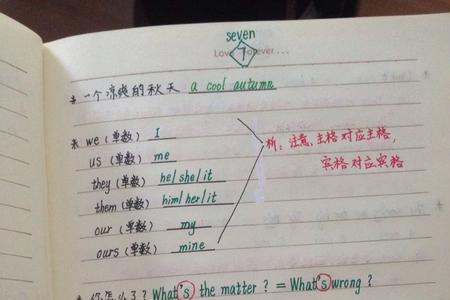 seven
7
Love Forever...
* 一个凉爽的秋天 a cool autumn
* we (单数) I
us (单数) me
they (单数) he/she/it
them (单数) him/her/it
our (单数) my
ours (单数) mine
析：注意，主格对应主格，
宾格对应宾格
* 你怎么了？What's the matter ? = What's wrong ?